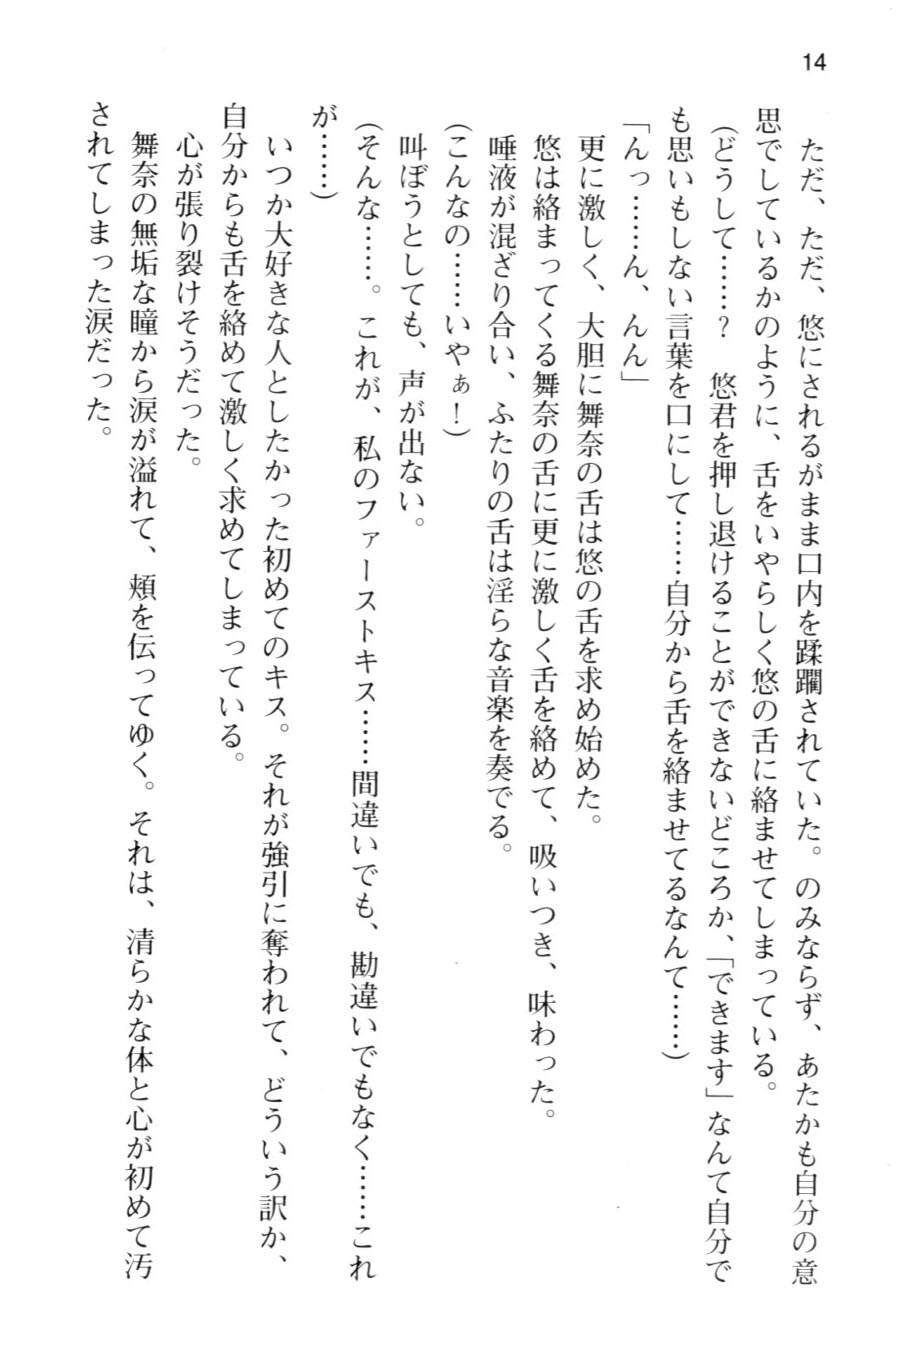 14
ただ、ただ、悠にされるがまま口内を蹂躙されていた。のみならず、あたかも自分の意
思でしているかのように、舌をいやらしく悠の舌に絡ませてしまっている。
(どうして……? 悠君を押し退けることができないどころか、「できます」なんて自分で
も思いもしない言葉を口にして……自分から舌を絡ませてるなんて……)
「んっ……ん、んん」
更に激しく、大胆に舞奈の舌は悠の舌を求め始めた。
悠は絡まってくる舞奈の舌に更に激しく舌を絡めて、吸いつき、味わった。
唾液が混ざり合い、ふたりの舌は淫らな音楽を奏でる。
(こんなの……いやぁ!)
叫ぼうとしても、声が出ない。
(そんな……。これが、私のファーストキス……間違いでも、勘違いでもなく……これ
が……)
いつか大好きな人としたかった初めてのキス。それが強引に奪われて、どういう訳か、
自分からも舌を絡めて激しく求めてしまっている。
心が張り裂けそうだった。
舞奈の無垢な瞳から涙が溢れて、頬を伝ってゆく。それは、清らかな体と心が初めて汚
されてしまった涙だった。